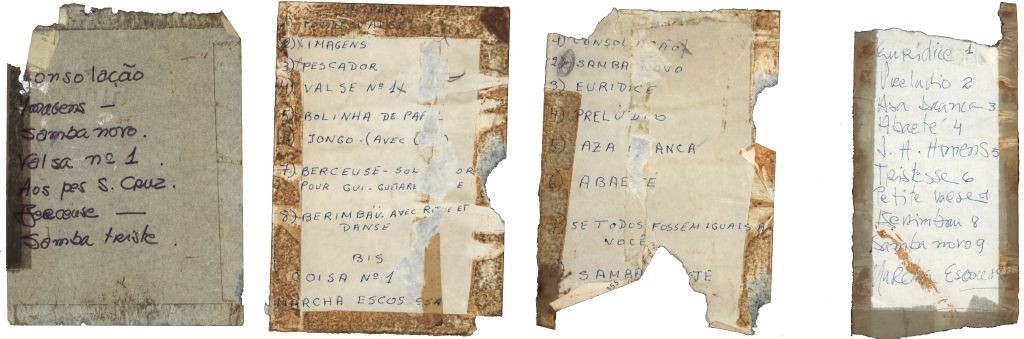 Consolação
Imagens —
Samba novo.
Valsa nº 1.
Aos pes S. Cruz.
Berceuse —
Samba triste.
1) VALSE
2) X IMAGENS
3) PESCADOR
4) VALSE Nº 1 X
5) BOLINHA DE
JONGO. (AVEC
7) BERCEUSE - SOL
POUR GUI-GUITARE
8) BERIMBAÜ. AVEC ET
DANSE
BIS
COISA Nº 1
MARCHA
1) CONSOLAÇÃO X
2) SAMBA NOVO
3) EURIDICE
4) PRELÚDIO
5) AZA
6) ABAETE
SE TODOS FOSSEM IGUAIS A
VOCÊ
SAMBA
Euridice 1
Preludio 2
Asa branca 3
Abaeté 4
J. A. Homens 5
Tristesse 6
Petite Valse
Berimbau 8
Samba novo 9
Marcha